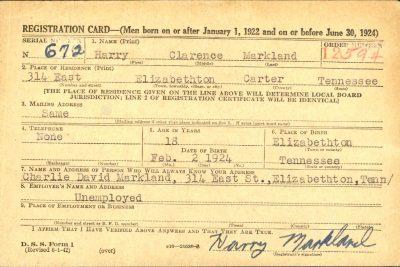 REGISTRATION CARD—(Men born on or after January 1, 1922 and on or before June 30, 1924)
SERIAL NUMBER 1. NAME (Print) ORDER NUMBER
N 672 Harry Clarence Markland 12594
(First) (Middle) (Last)
2. PLACE OF RESIDENCE (Print)
314 East Elizabethton Carter Tennessee
(Number and street) (Town, township, village, or city) (County) (State)
[THE PLACE OF RESIDENCE GIVEN ON THE LINE ABOVE WILL DETERMINE LOCAL BOARD
JURISDICTION; LINE 2 OF REGISTRATION CERTIFICATE WILL BE IDENTICAL]
3. MAILING ADDRESS
Same
[Mailing address if other than place indicated on line 2. If same insert word same]
4. TELEPHONE 5. AGE IN YEARS 6. PLACE OF BIRTH
None 18 Elizabethton
DATE OF BIRTH (Town or county)
Feb. 2 1924 Tennessee
(Exchange) (Number) (Mo.) (Day) (Yr.) (State or country)
7. NAME AND ADDRESS OF PERSON WHO WILL ALWAYS KNOW YOUR ADDRESS
Charlie David Markland, 314 East St., Elizabethton, Tenn/
8. EMPLOYER'S NAME AND ADDRESS
Unemployed
9. PLACE OF EMPLOYMENT OR BUSINESS
(Number and street or R. F. D. number) (Town) (County) (State)
I AFFIRM THAT I HAVE VERIFIED ABOVE ANSWERS AND THAT THEY ARE TRUE.
D. S. S. Form 1
(Revised 6-1-42) (over) Harry Markland
(Registrant's signature)